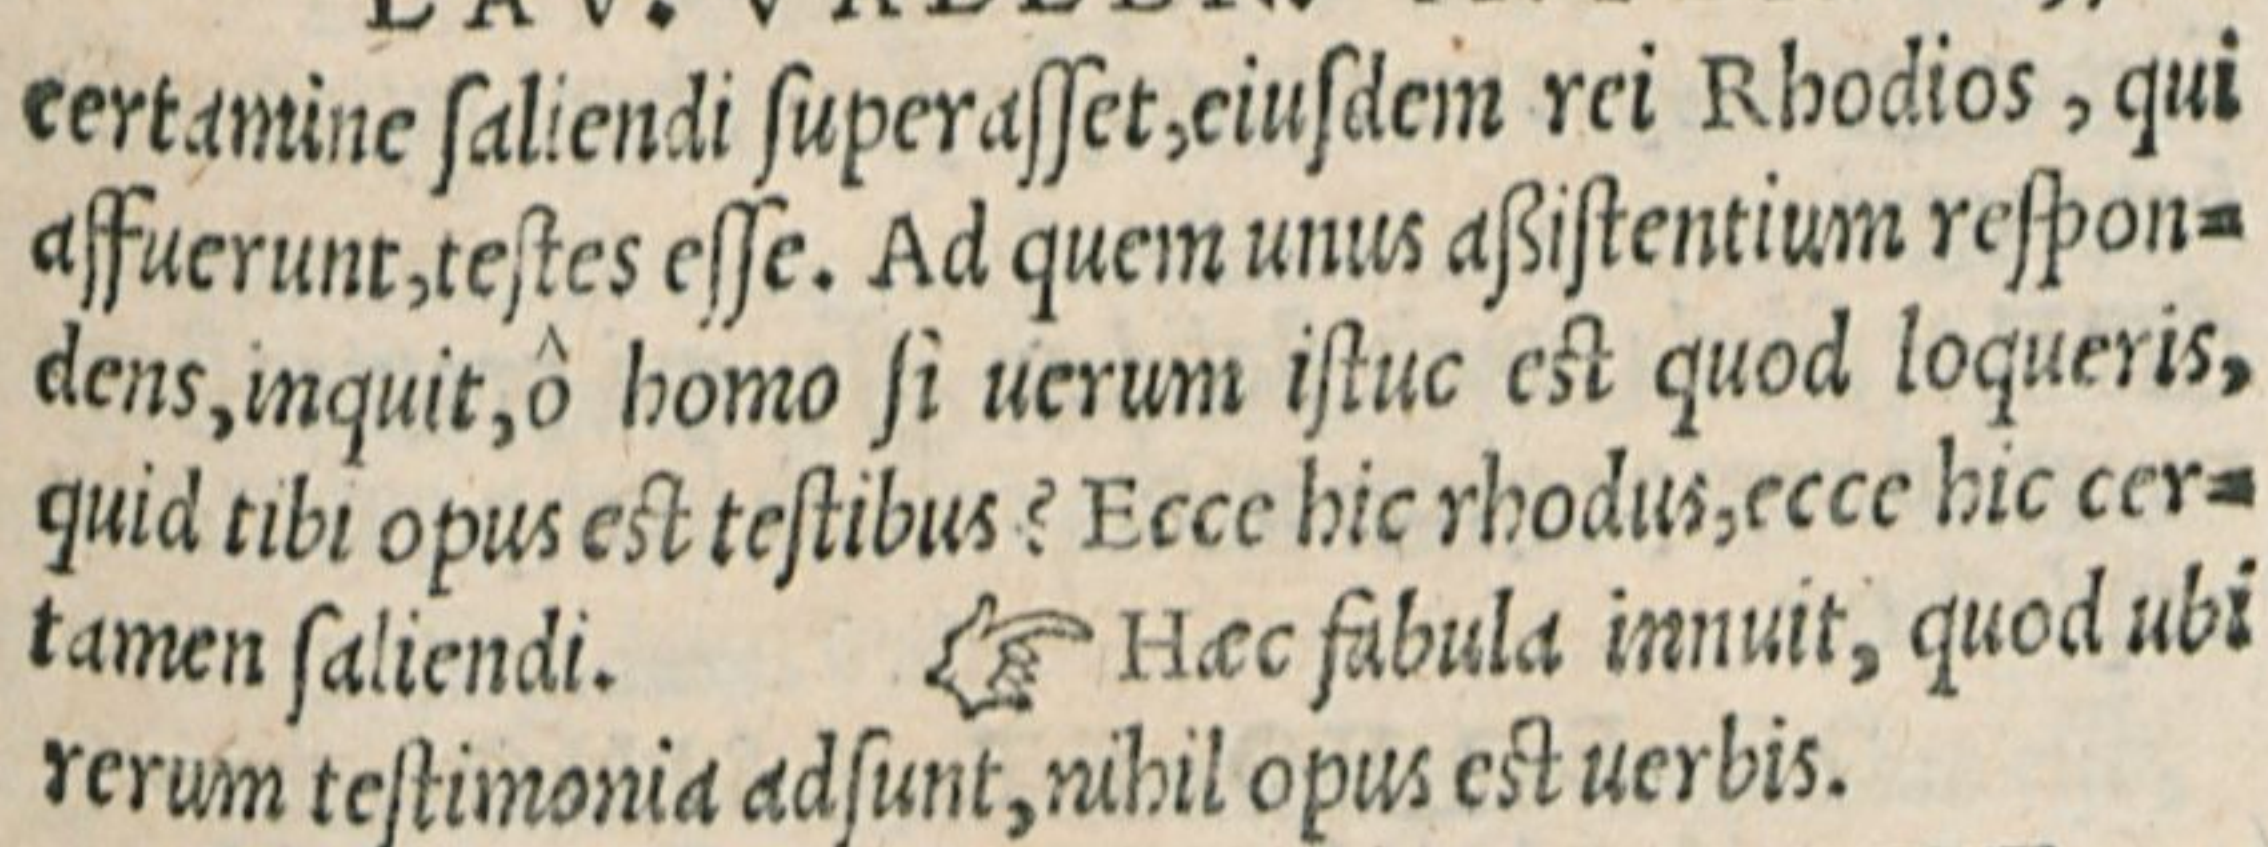 LAV. VALLEN.
certamine ſaliendi ſuperaſſet,eiuſdem rei Rhodios, qui
affuerunt,teſtes eſſe. Ad quem unus aßiſtentium reſpon=
dens,inquit,ô homo ſi uerum iſtuc eſt quod loqueris,
quid tibi opus eſt teſtibus? Ecce hic rhodus,ecce hic cer=
tamen ſaliendi. ☞ Hæc fabula innuit, quod ubi
rerum teſtimonia adſunt,nihil opus eſt uerbis.